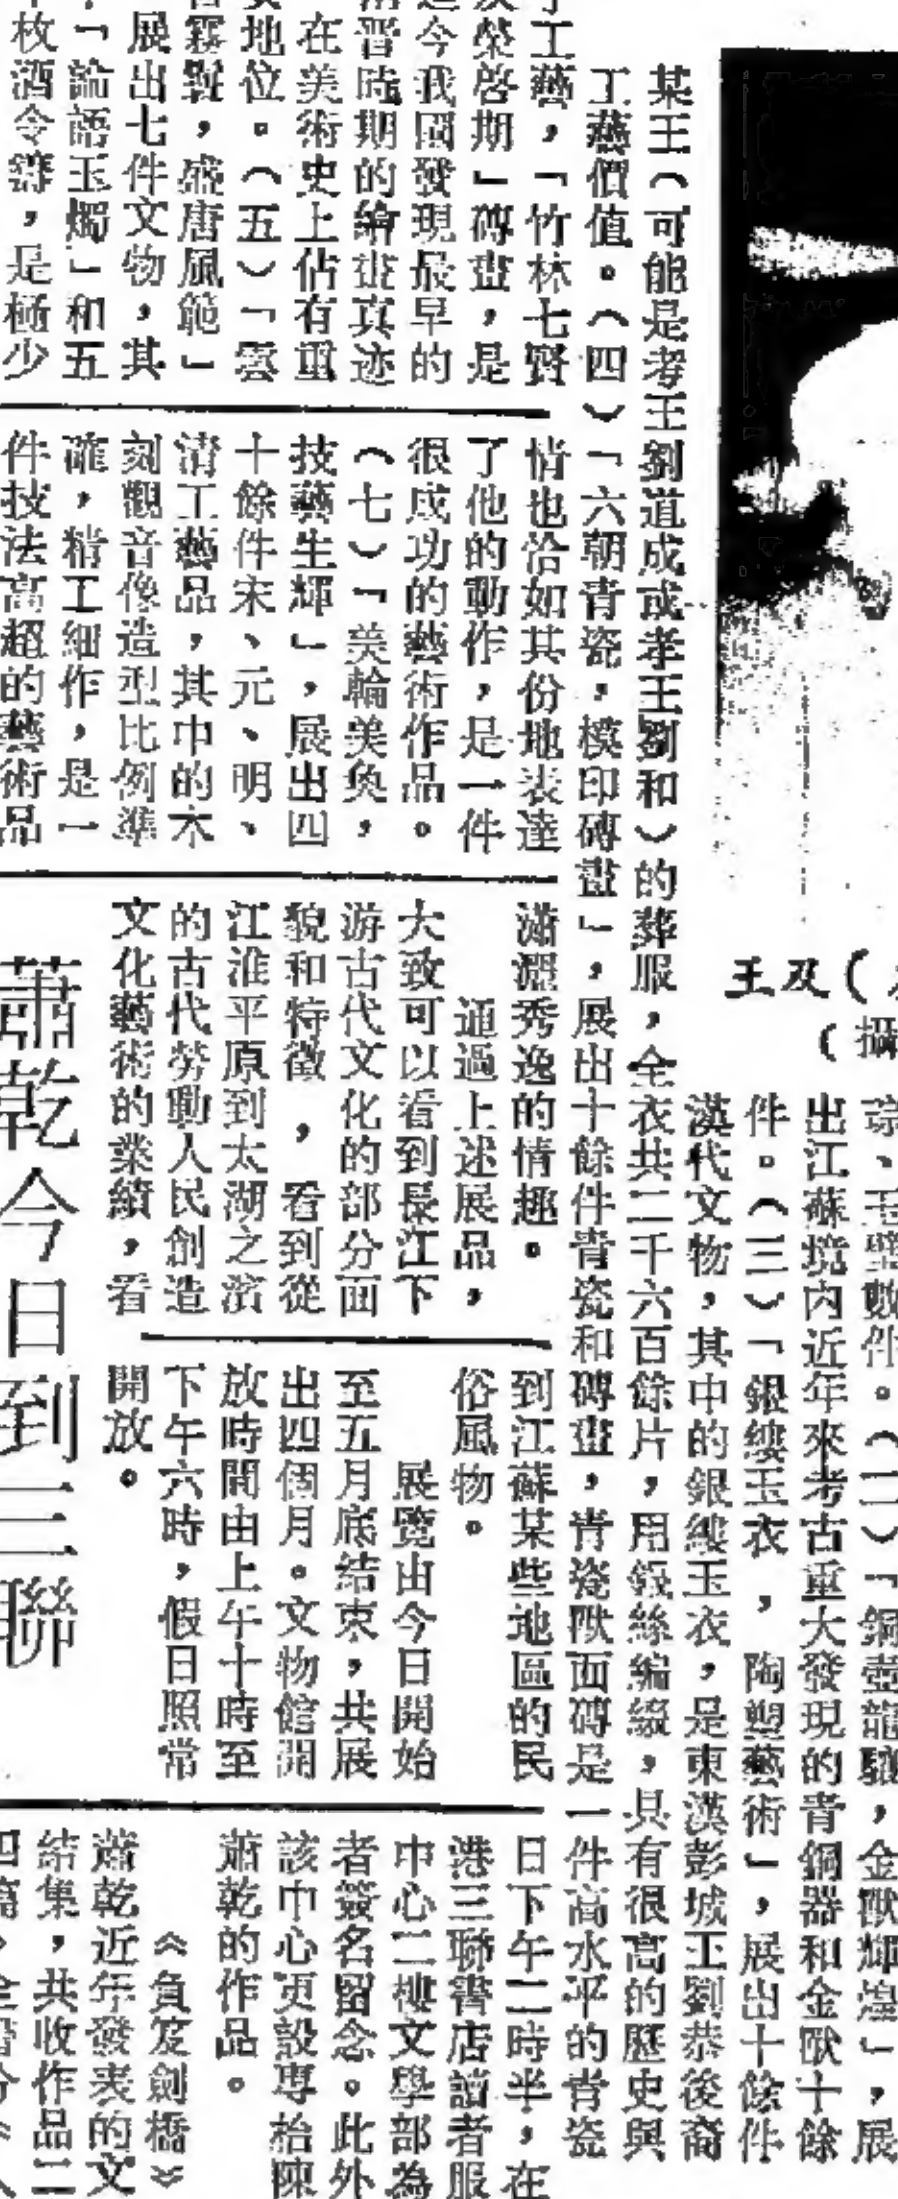 王及（
攝）
琮、玉璧數件。（二）「銅壺龍驤，金獸輝煌」，展
出江蘇境內近年來考古重大發現的青銅器和金獸十餘
件。（三）「銀縷玉衣，陶塑藝術」，展出十餘件
漢代文物，其中的銀縷玉衣，是東漢彭城王劉恭後裔
某王（可能是考王劉道成或孝王劉和）的葬服，全衣共二千六百餘片，用銀絲編綴，具有很高的歷史與
工藝價值。（四）「六朝青瓷，模印磚畫」，展出十餘件青瓷和磚畫，青瓷獸面磚是一件高水平的青瓷
工藝，「竹林七賢
榮啓期」磚畫，是
今我國發現最早的
晋時期的繪畫真迹
在美術史上佔有重
地位。（五）「雲
霧鬢，盛唐風範」
展出七件文物，其
「論語玉燭」和五
枚酒令籌，是極少
情也恰如其份地表達
了他的動作，是一件
很成功的藝術作品。
（七）「美輪美奐，
技藝生輝」，展出四
十餘件宋、元、明、
清工藝品，其中的木
刻觀音像造型比例準
確，精工細作，是一
件技法高超的藝術品
瀟灑秀逸的情趣。
通過上述展品，
大致可以看到長江下
游古代文化的部分面
貌和特徵，看到從
江淮平原到太湖之濱
的古代勞動人民創造
文化藝術的業績，看
到江蘇某些地區的民
俗風物。
展覽由今日開始
至五月底結束，共展
出四個月。文物館開
放時間由上午十時至
下午六時，假日照常
開放。
蕭乾今日到三聯
日下午二時半，在
港三聯書店讀者服
中心二樓文學部為
者簽名留念。此外
該中心更設專枱陳
蕭乾的作品。
《負笈劍橋》
蕭乾近年發表的文
結集，共收作品二